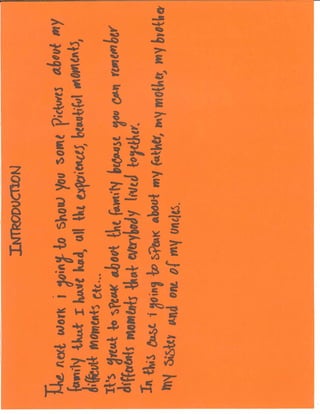 INTRODUCTION
The next work i going to show you some Pictures about my
family that I have had, all the experiences, beautiful moments,
difficult moments etc...
It's great to speak about the family because you can remember
differents moments that everybody lived together.
In this case i going to speak about my father, my mother, my brother
my sister and one of my uncles.